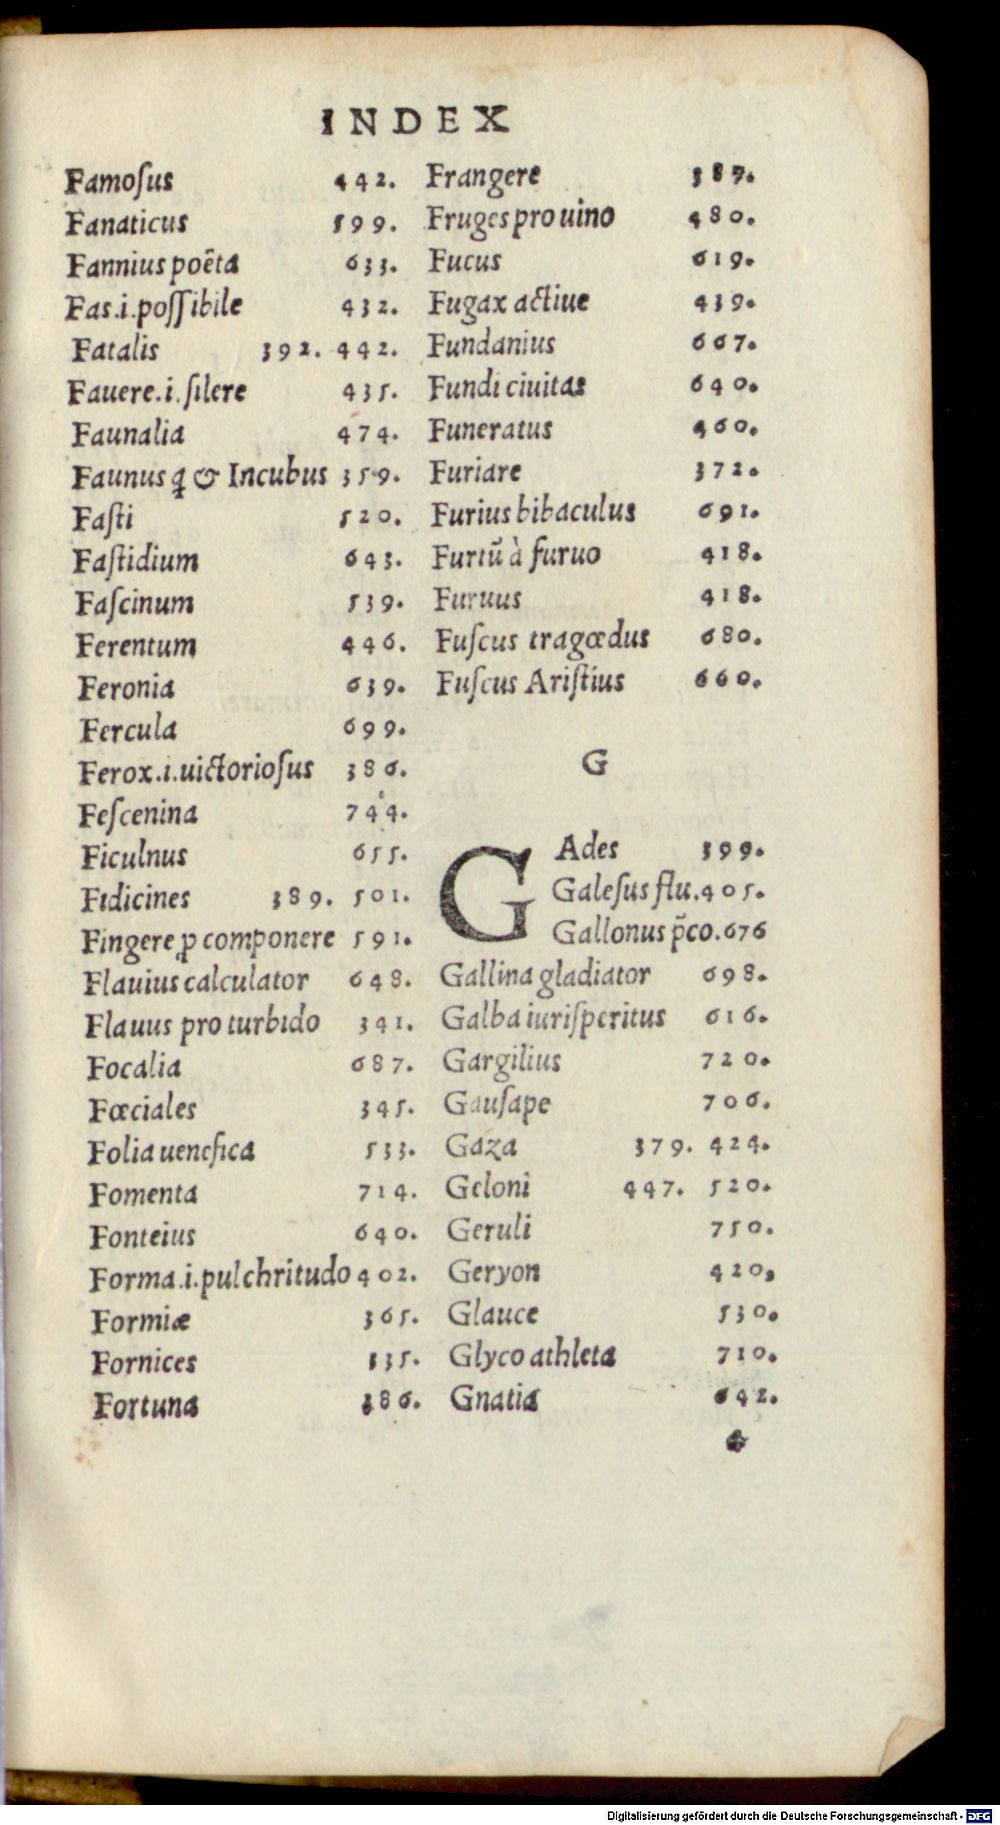 INDEX
Famoſus 442.
Fanaticus 599.
Fannius poëta 633.
Fas.i.poſſibile 432.
Fatalis 392. 442.
Fauere.i.ſilere 435.
Faunalia 474.
Faunus q̃ & Incubus 359.
Faſti 520.
Faſtidium 643.
Faſcinum 539.
Ferentum 446.
Feronia 639.
Fercula 699.
Ferox.i.uictorioſus 386.
Feſcenina 744.
Ficulnus 655.
Fidicines 389. 501.
Fingere ꝓ componere 591.
Flauius calculator 648.
Flauus pro turbido 341.
Focalia 687.
Fœciales 345.
Folia uenefica 533.
Fomenta 714.
Fonteius 640.
Forma.i.pulchritudo 402.
Formiæ 365.
Fornices 335.
Fortuna 386.
Frangere 387.
Fruges pro uino 480.
Fucus 619.
Fugax actiue 439.
Fundanius 667.
Fundi ciuitas 640.
Funeratus 460.
Furiare 372.
Furius bibaculus 691.
Furtū à furuo 418.
Furuus 418.
Fuſcus tragœdus 680.
Fuſcus Ariſtius 660.
G
GAdes 399.
Galeſus flu.405.
Gallonus p̃co.676
Gallina gladiator 698.
Galba iuriſperitus 616.
Gargilius 720.
Gauſape 706.
Gaza 379. 424.
Geloni 447. 520.
Geruli 750.
Geryon 420,
Glauce 530.
Glyco athleta 710.
Gnatia 642.
Digitalisierung gefördert durch die Deutsche Forschungsgemeinschaft - DFG